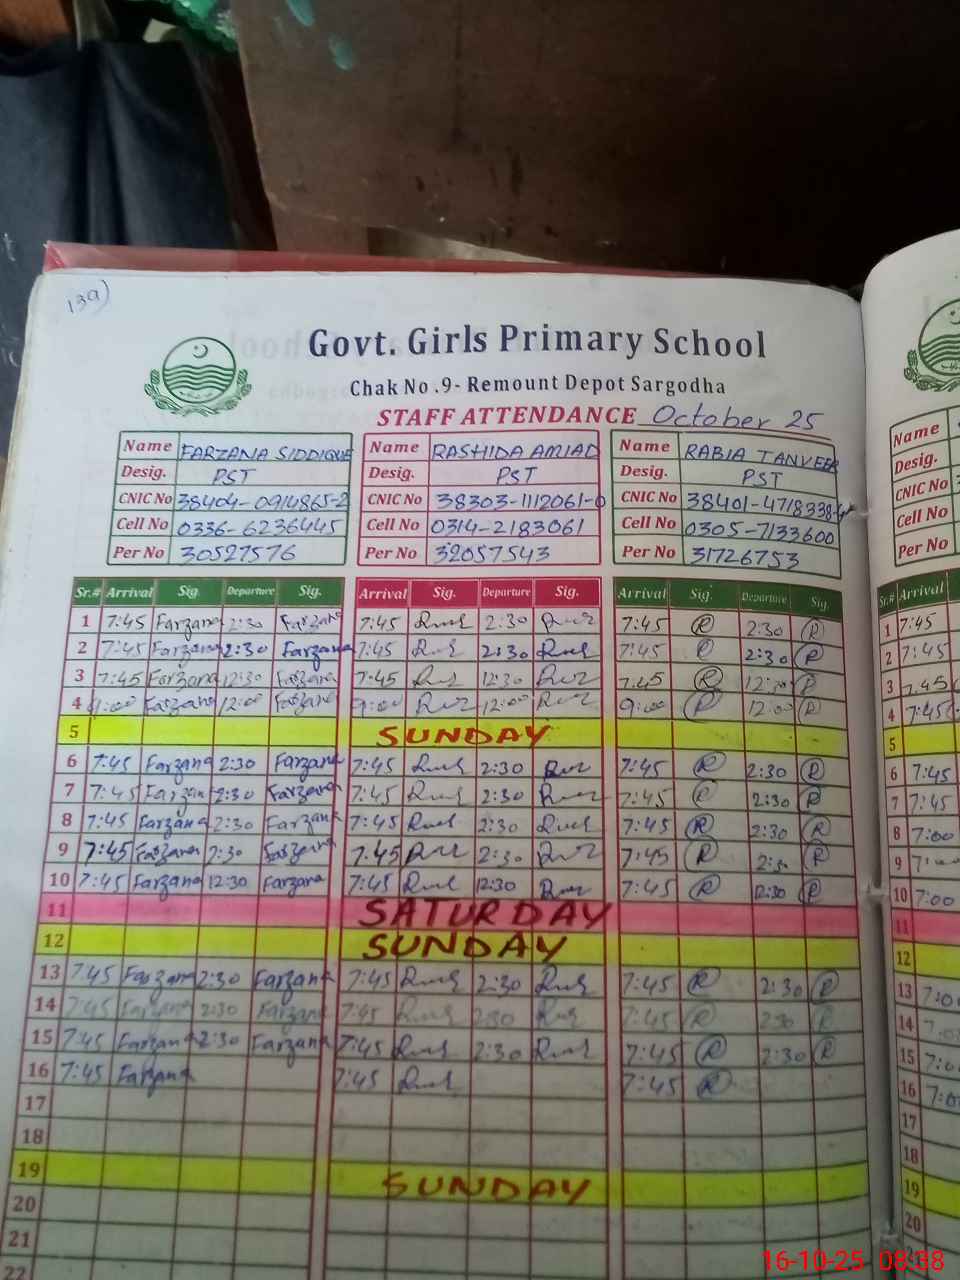 139)
Govt. Girls Primary School
Chak No.9- Remount Depot Sargodha
STAFF ATTENDANCE October 25
Name FARZANA SIDDIQUE Name RASHIDA AMJAD Name RABIA TANVEER Name
Desig. PST Desig. PST Desig. PST Desig.
CNIC No 38404-0914865-2 CNIC No 38303-1112061-0 CNIC No 38401-4718338-4 CNIC No
Cell No 0336-6236445 Cell No 0314-2183061 Cell No 0305-7133600 Cell No
Per No 30527576 Per No 32057543 Per No 31726753 Per No
Sr.# Arrival Sig. Departure Sig. Arrival Sig. Departure Sig. Arrival Sig. Departure Sig. Sr.# Arrival
1 7:45 Farzana 2:30 Farzana 7:45 2:30 7:45 R 2:30 R 1 7:45
2 7:45 Farzana 2:30 Farzana 7:45 2:30 7:45 R 2:30 R 2 7:45
3 7:45 Farzana 12:30 Farzana 7:45 12:30 7:45 R 12:30 R 3 7:45
4 9:00 Farzana 12:00 Farzana 9:00 12:00 9:00 R 12:00 R 4 7:45
5 SUNDAY 5
6 7:45 Farzana 2:30 Farzana 7:45 2:30 7:45 R 2:30 R 6 7:45
7 7:45 Farzana 2:30 Farzana 7:45 2:30 7:45 R 2:30 R 7 7:45
8 7:45 Farzana 2:30 Farzana 7:45 2:30 7:45 R 2:30 R 8 7:00
9 7:45 Farzana 2:30 Farzana 7:45 2:30 7:45 R 2:30 R 9
10 7:45 Farzana 12:30 Farzana 7:45 12:30 7:45 R 12:30 R 10 7:00
11 SATURDAY 11
12 SUNDAY 12
13 7:45 Farzana 2:30 Farzana 7:45 2:30 7:45 R 2:30 R 13
14 7:45 Farzana 2:30 Farzana 7:45 2:30 7:45 R 2:30 R 14
15 7:45 Farzana 2:30 Farzana 7:45 2:30 7:45 R 2:30 R 15
16 7:45 Farzana 7:45 7:45 R 16
17 17
18 18
19 SUNDAY 19
20 20
21
22
16-10-25 08:38